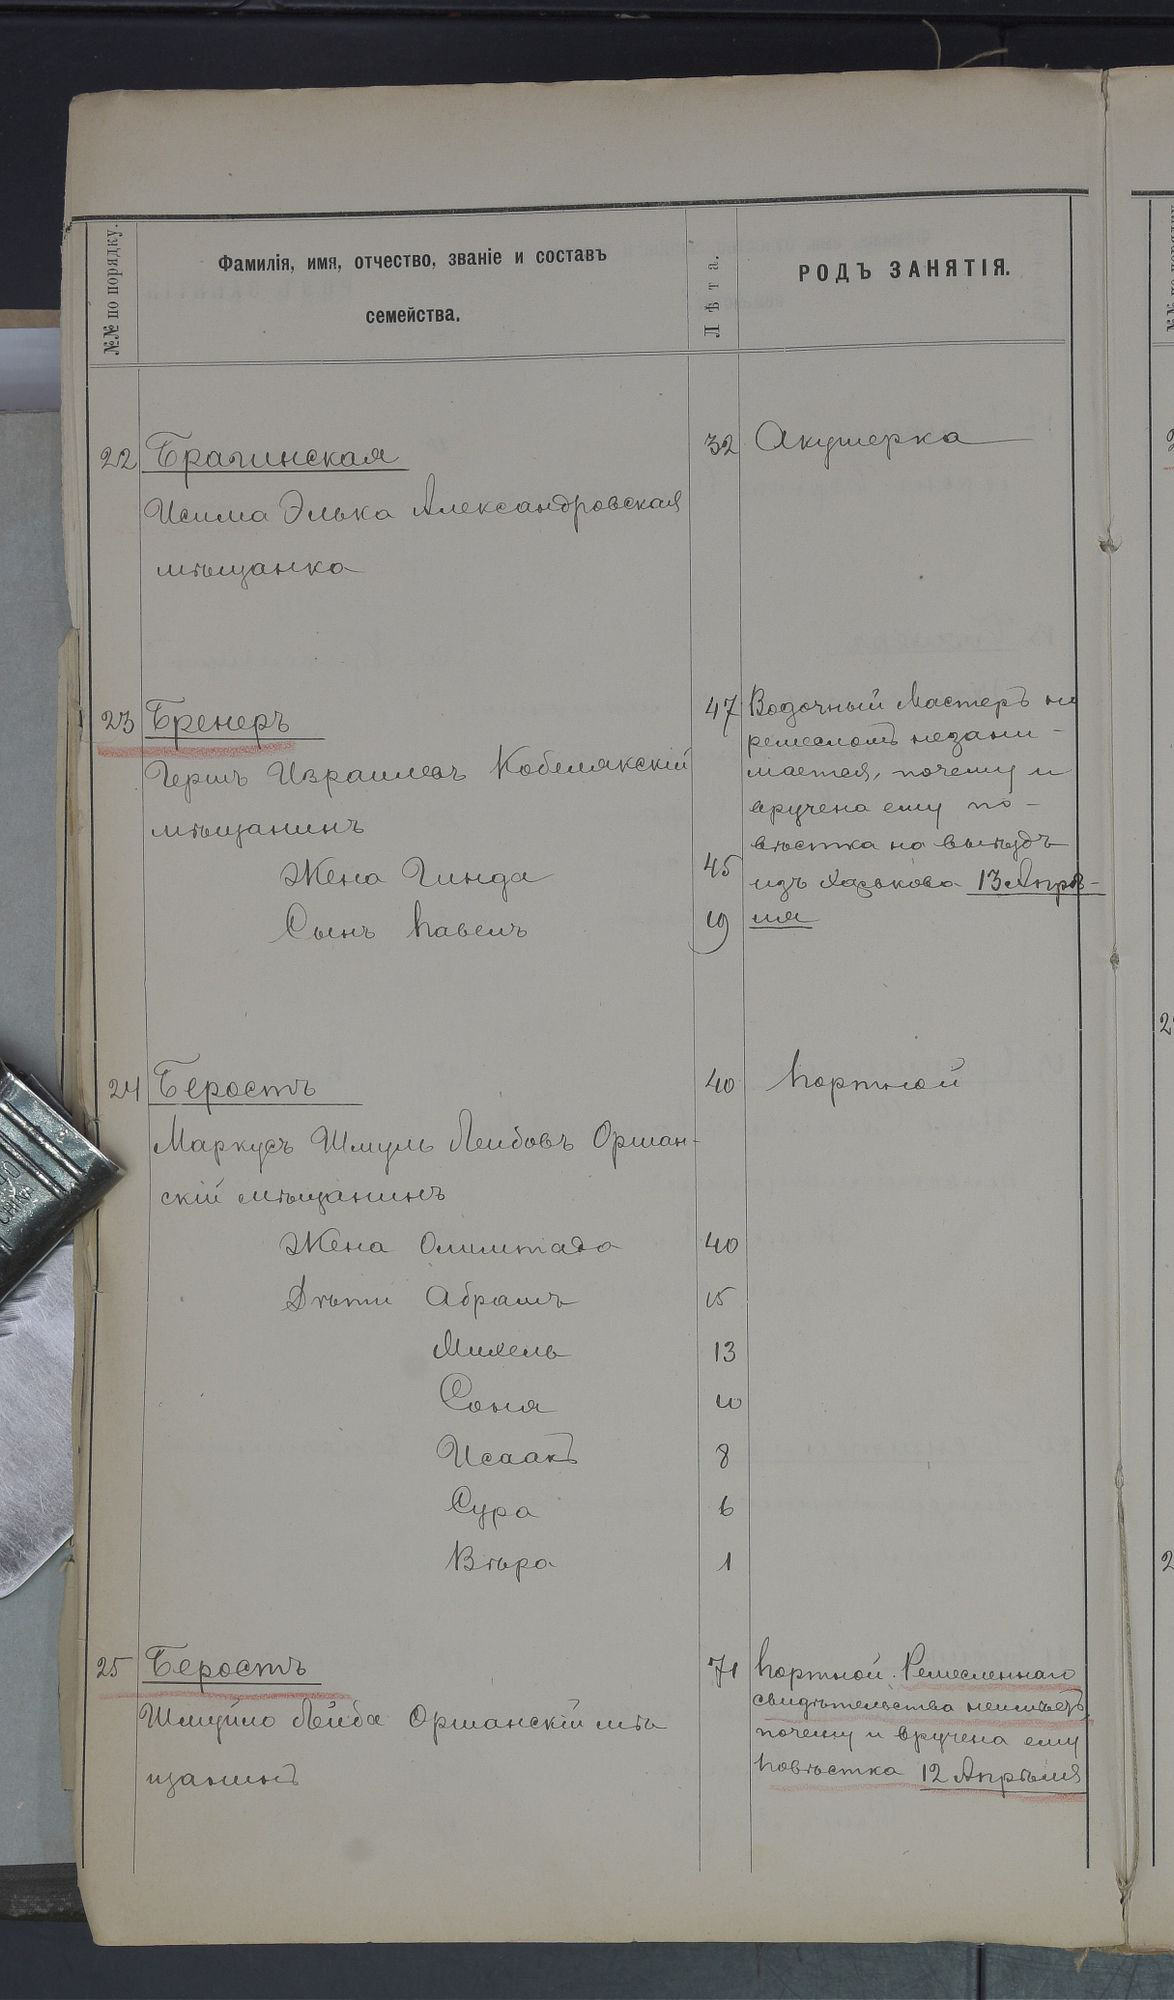 №№ по порядку.
Фамилія, имя, отчество, званіе и составъ
семейства.
Лѣта.
РОДЪ ЗАНЯТІЯ.
22 Брагинская 32 Акушерка
Элька Александровская
мѣщанка
23 Бренеръ 47 Водочный Мастеръ но
ремесломъ незани-
Гершъ Израилевъ Кобелякскій мается, почему и
вручена ему по-
мѣщанинъ
вѣстка на выѣздъ
Жена Гинда 45 изъ Харькова 13 Апрѣ-
Сынъ Павелъ 19 ля
24 Беростъ 40 Портной
Маркусъ Шмуль Лейбовъ Оршан-
скій мѣщанинъ
Жена 40
Дѣти Абрамъ 15
Михель 13
Соня 10
Исаакъ 8
Сура 6
Вѣра 1
25 Беростъ 71 Портной. Ремесленнаго
свидѣтельства неимѣетъ,
Шмуйло Лейба Оршанскій мѣ почему и вручена ему
щанинъ повѣстка 12 Апрѣля